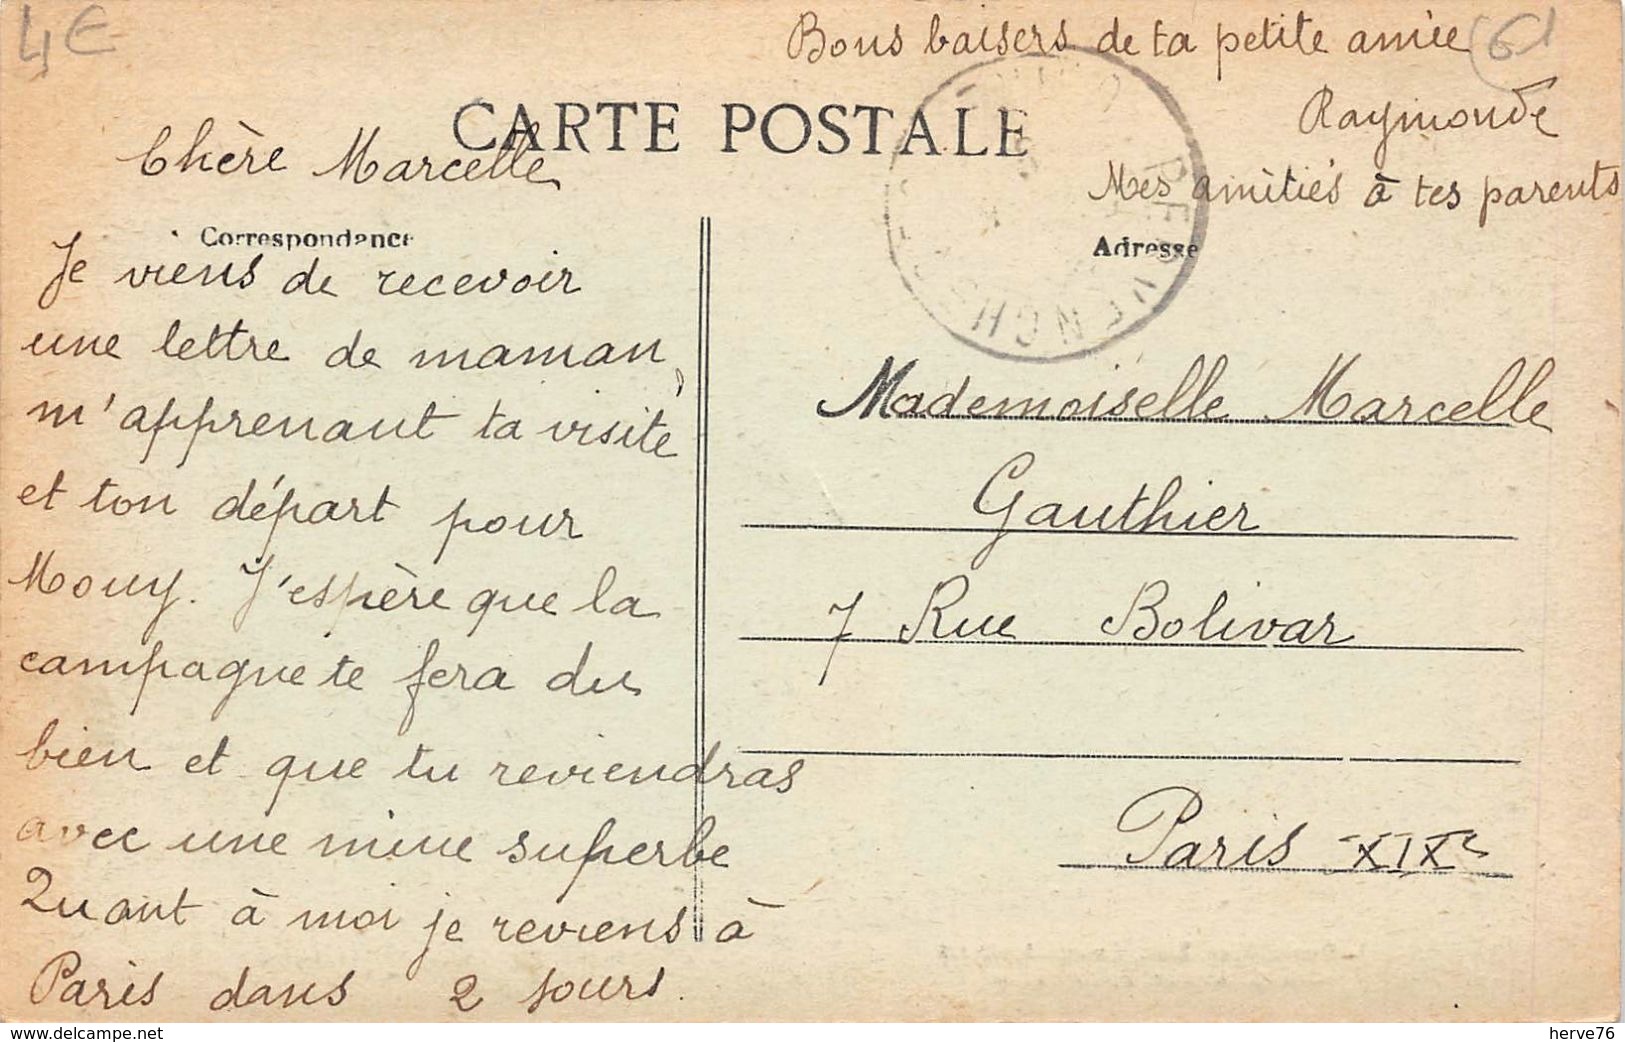 4€
Bons baisers de ta petite amie
61
Raymonde
CARTE POSTALE
Chère Marcelle
Mes amitiés à tes parents
Correspondance
Adresse
Je viens de recevoir
une lettre de maman,
m'apprenant ta visite
et ton départ pour
Mouy. J'espère que la
campagne te fera du
bien et que tu reviendras
avec une mine superbe
Quant à moi je reviens à
Paris dans 2 jours.
Mademoiselle Marcelle
Gauthier
7 Rue Bolivar
Paris XIXe
delcampe.net
herve76